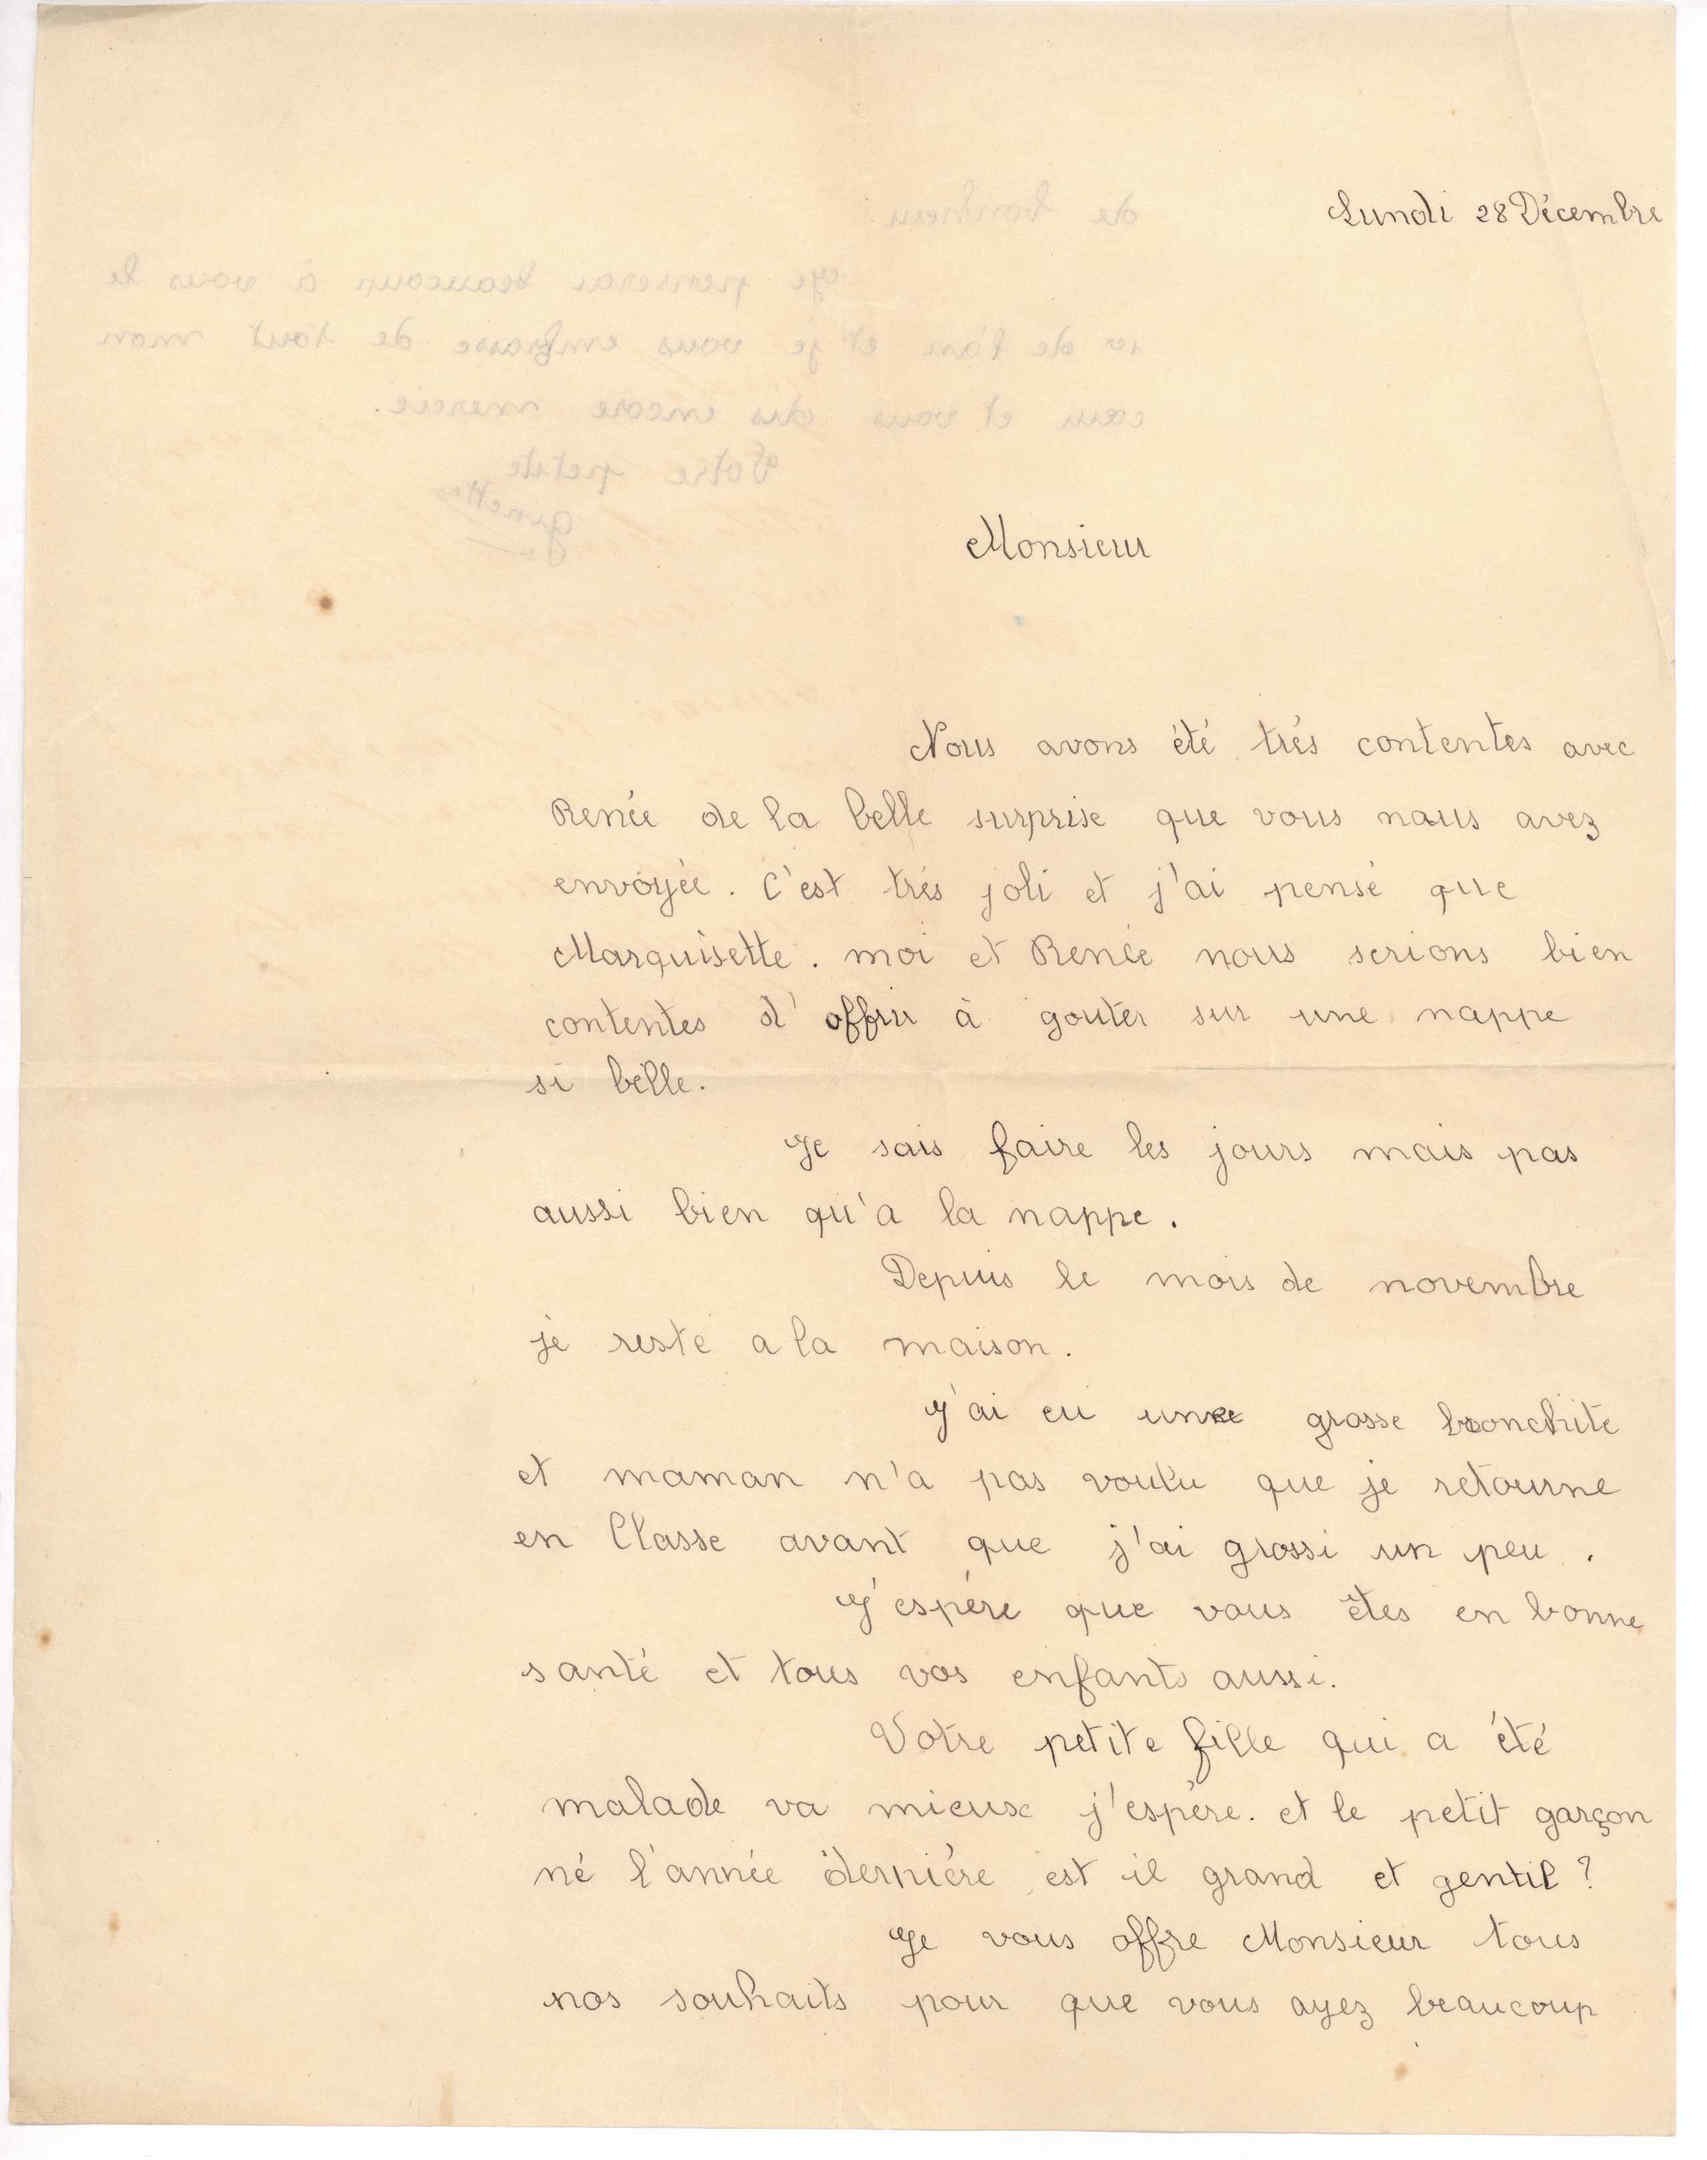 Lundi 28 Décembre
Monsieur
Nous avons été très contentes avec
Renée de la belle surprise que vous nous avez
envoyée. C'est très joli et j'ai pensé que
Marquisette. moi et Renée nous serions bien
contentes d'offrir à gouter sur une nappe
si belle.
Je sais faire les jours mais pas
aussi bien qu'a la nappe.
Depuis le mois de novembre
je reste a la maison.
J'ai eu une grosse bronchite
et maman n'a pas voulu que je retourne
en Classe avant que j'ai grossi un peu.
J'espère que vous êtes en bonne
santé et tous vos enfants aussi.
Votre petite fille qui a été
malade va mieux j'espère. et le petit garçon
né l'année dernière est il grand et gentil ?
Je vous offre Monsieur tous
nos souhaits pour que vous ayez beaucoup
de bonheur.
Je penserai beaucoup à vous le
1er de l'an et je vous embrasse de tout mon
cœur et vous dis encore mercie.
Votre petite
Ginette